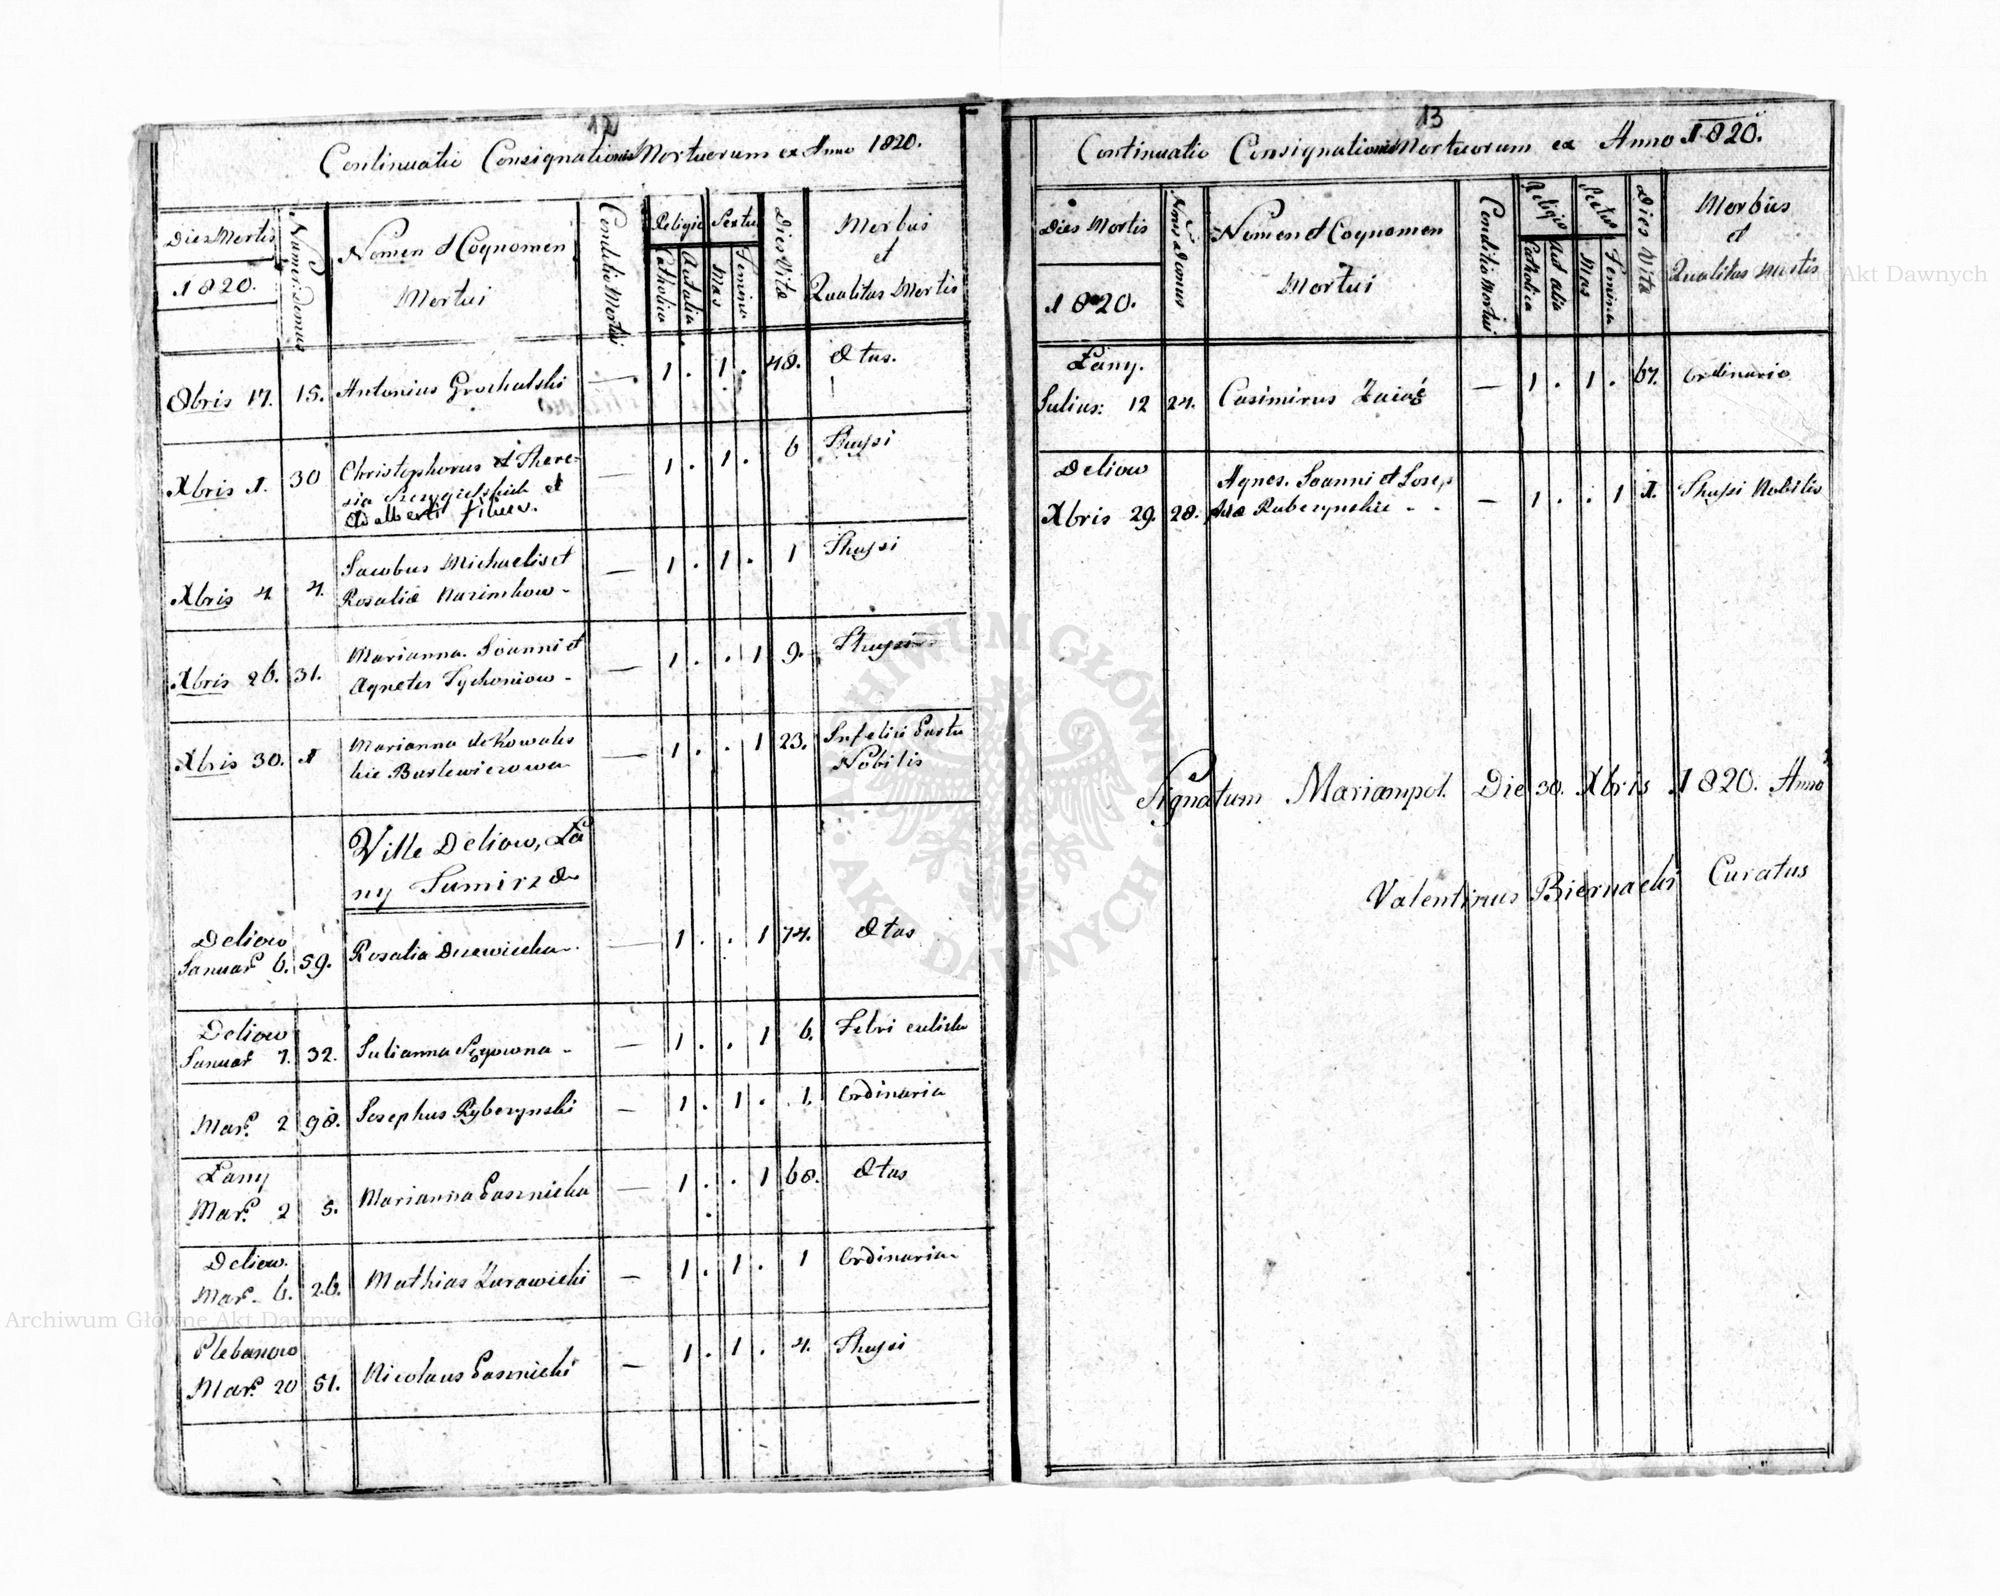 12
Continuatio Consignationis Mortuorum ex Anno 1820.
Dies Mortis
1820.
Numeri Domus
Nomen et Cognomen
Mortui
Conditio Mortui
Religio
Catholica
Aut alia
Sexus
Mas
Femina
Dies Vitæ
Morbus
et
Qualitas Mortis
8bris 17. 15. Antonius Grochalski — 1 . 1 . 48. Ætas.
Xbris 1. 30 Christophorus et There-
sia
Adalberti filius. — 1 . 1 . 6 Thussi
Xbris 4. 4. Jacobus Michaelis et
Rosaliæ Narimkow - — 1 . 1 . 1 Thussi
Xbris 26. 31. Marianna. Joanni et
Agnetis Tychoniow - — 1 . . 1 9. Thussi
Xbris 30. 1 Marianna de Kowals
kie Burlewiczowa — 1 . . 1 23. Infelici Partu
Nobilis
Ville Deliow, Ła
ny Tumirz &
Deliow
Januar 6. 59. Rosalia — 1 . . 1 74. Ætas
Deliow
Januar 7. 32. Julianna — 1 . . 1 6. Febri
Mar. 2 98. Josephus Ryberynski — 1 . 1 . 1. Ordinaria
Łany
Mar. 2 5. Marianna Pasznicka — 1 . . 1 68. Ætas
Deliow.
Mar. 6. 26. Mathias Zurawicki — 1 . 1 . 1 Ordinaria
Plebanow
Mar. 20 51. Nicolaus Pasznicki — 1 . 1 . 4. Thussi
13
Continuatio Consignationis Mortuorum ex Anno 1820.
Dies Mortis
1820.
Nrus Domus
Nomen et Cognomen
Mortui
Conditio Mortui
Religio
Catholica
Aut alia
Sexus
Mas
Femina
Dies Vitæ
Morbus
et
Qualitas Mortis
Łany.
Julius: 12 24. Casimirus Zaiąc — 1 . 1 . 67. Ordinario
Deliow
Xbris 29. 28. Agnes. Joanni et Josep
hæ Ruberynskie - - — 1 . . 1 1. Thussi Nobilis
Signatum Mariampol. Die 30. Xbris 1820. Anno
Valentinus Biernacki Curatus
ARCHIWUM GŁÓWNE
AKT DAWNYCH
Archiwum Główne Akt Dawnych
Archiwum Główne Akt Dawnych